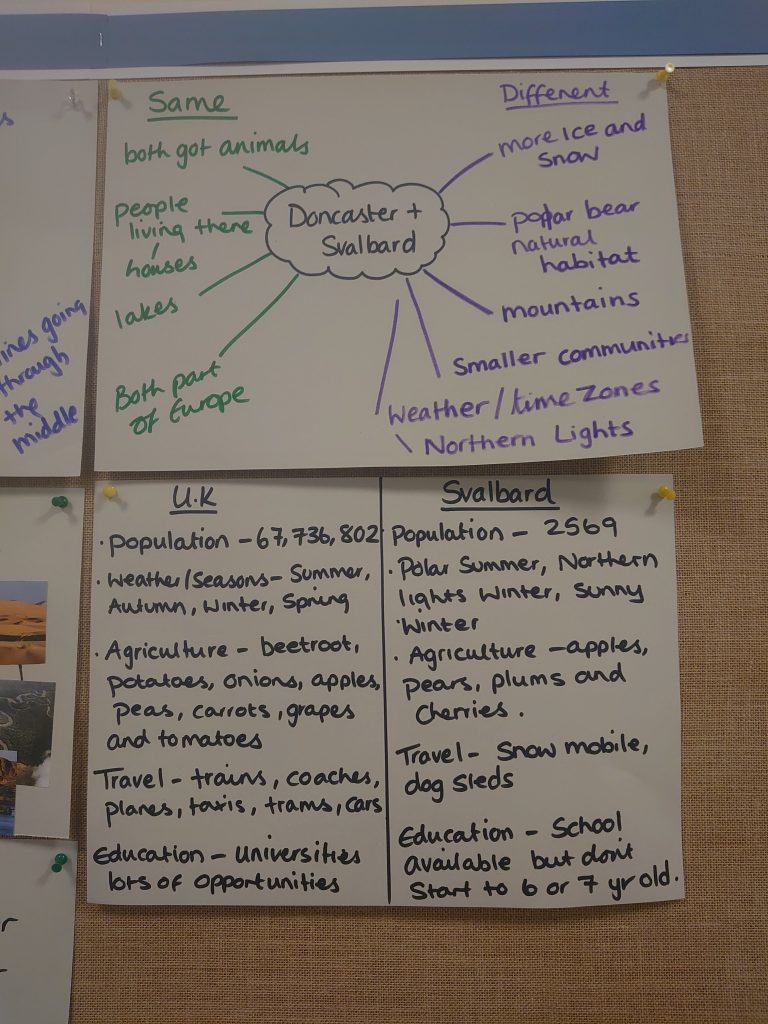 Same
both got animals
people
living there
/
houses
lakes
Both part
of Europe
Doncaster +
Svalbard
Different
more Ice and
snow
polar bear
natural
habitat
mountains
Smaller communities
Weather / time Zones
\ Northern Lights
lines going
through
the
middle
U.K
• Population - 67,736,802
• Weather/Seasons - Summer,
Autumn, Winter, Spring
• Agriculture - beetroot,
potatoes, onions, apples,
peas, carrots, grapes
and tomatoes
Travel - trains, coaches,
planes, taxis, trams, cars
Education - Universities
lots of opportunities
Svalbard
Population - 2569
• Polar Summer, Northern
lights Winter, Sunny
Winter
• Agriculture - apples,
pears, plums and
Cherries.
Travel - Snow mobile,
dog sleds
Education - School
available but don't
Start to 6 or 7 yr old.